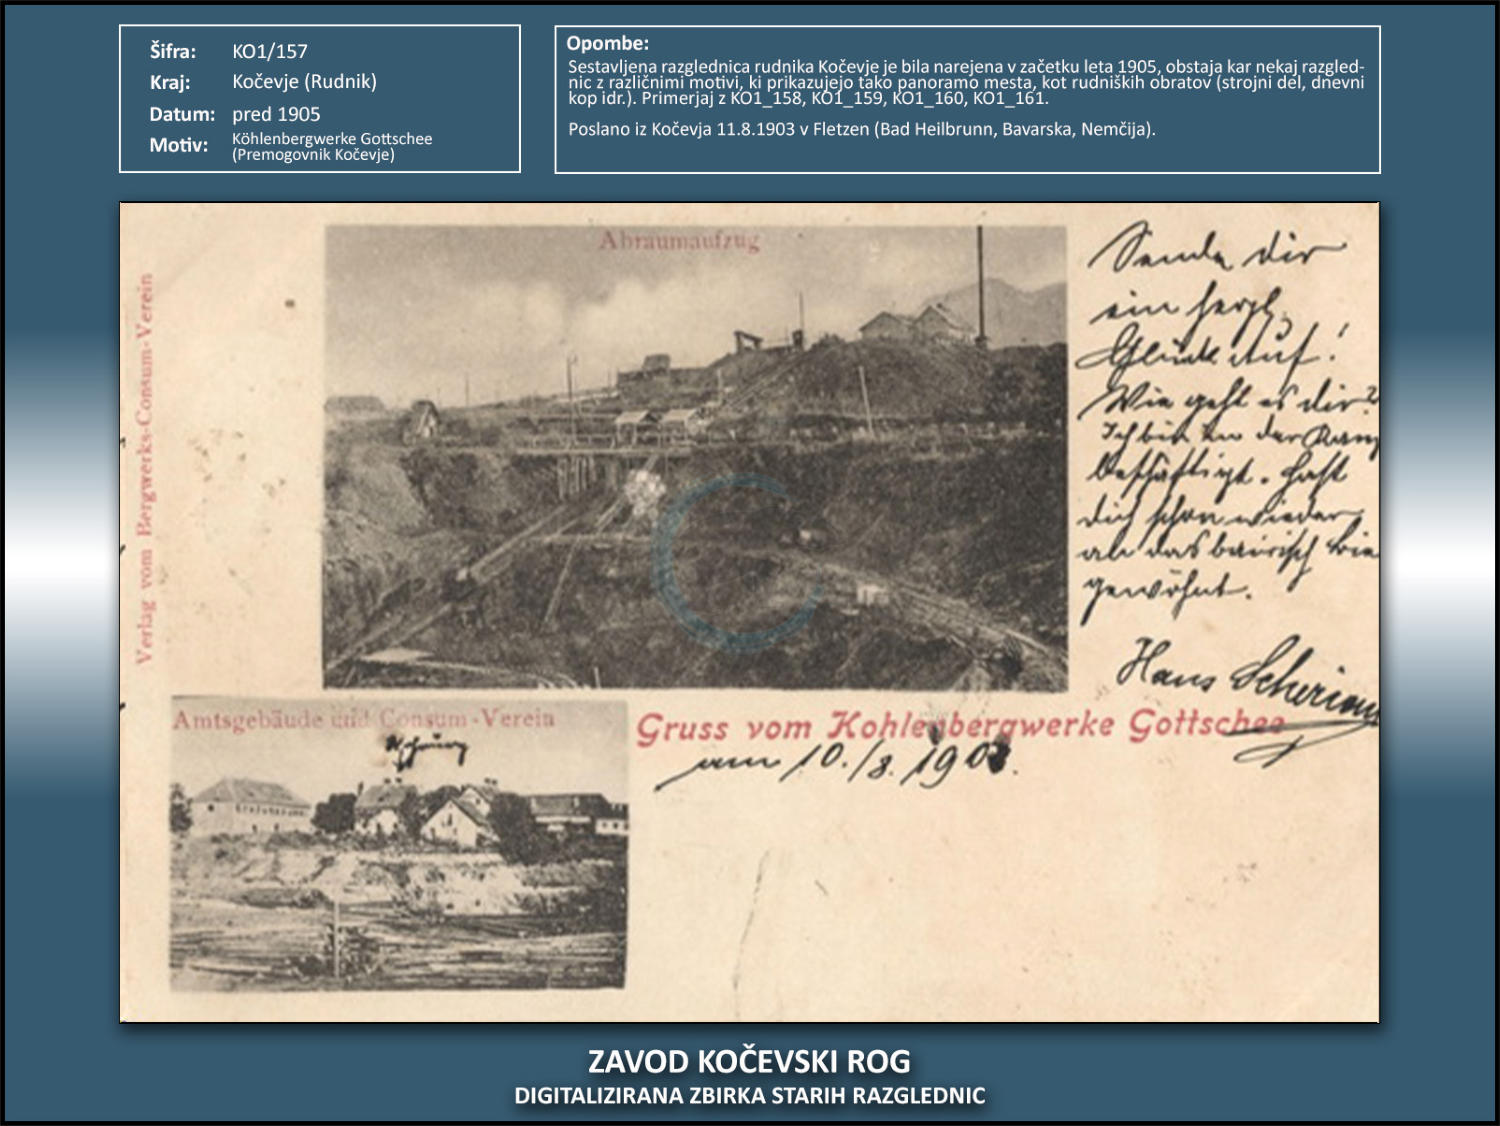 Šifra: KO1/157
Kraj: Kočevje (Rudnik)
Datum: pred 1905
Motiv: Köhlenbergwerke Gottschee
(Premogovnik Kočevje)
Opombe:
Sestavljena razglednica rudnika Kočevje je bila narejena v začetku leta 1905, obstaja kar nekaj razgled-
nic z različnimi motivi, ki prikazujejo tako panoramo mesta, kot rudniških obratov (strojni del, dnevni
kop idr.). Primerjaj z KO1_158, KO1_159, KO1_160, KO1_161.
Poslano iz Kočevja 11.8.1903 v Fletzen (Bad Heilbrunn, Bavarska, Nemčija).
Verlag vom Bergwerks-Consum-Verein
Abraumaufzug
Sende dir
ein herzl.
Glück Auf!
Wie geht es dir?
Ich bin in der
beschäftigt. Hast
dich schon wieder
an das bairisch
gewöhnt.
Hans
Amtsgebäude und Consum-Verein
Gruss vom Kohlenbergwerke Gottschee
am 10./8. 1903.
ZAVOD KOČEVSKI ROG
DIGITALIZIRANA ZBIRKA STARIH RAZGLEDNIC